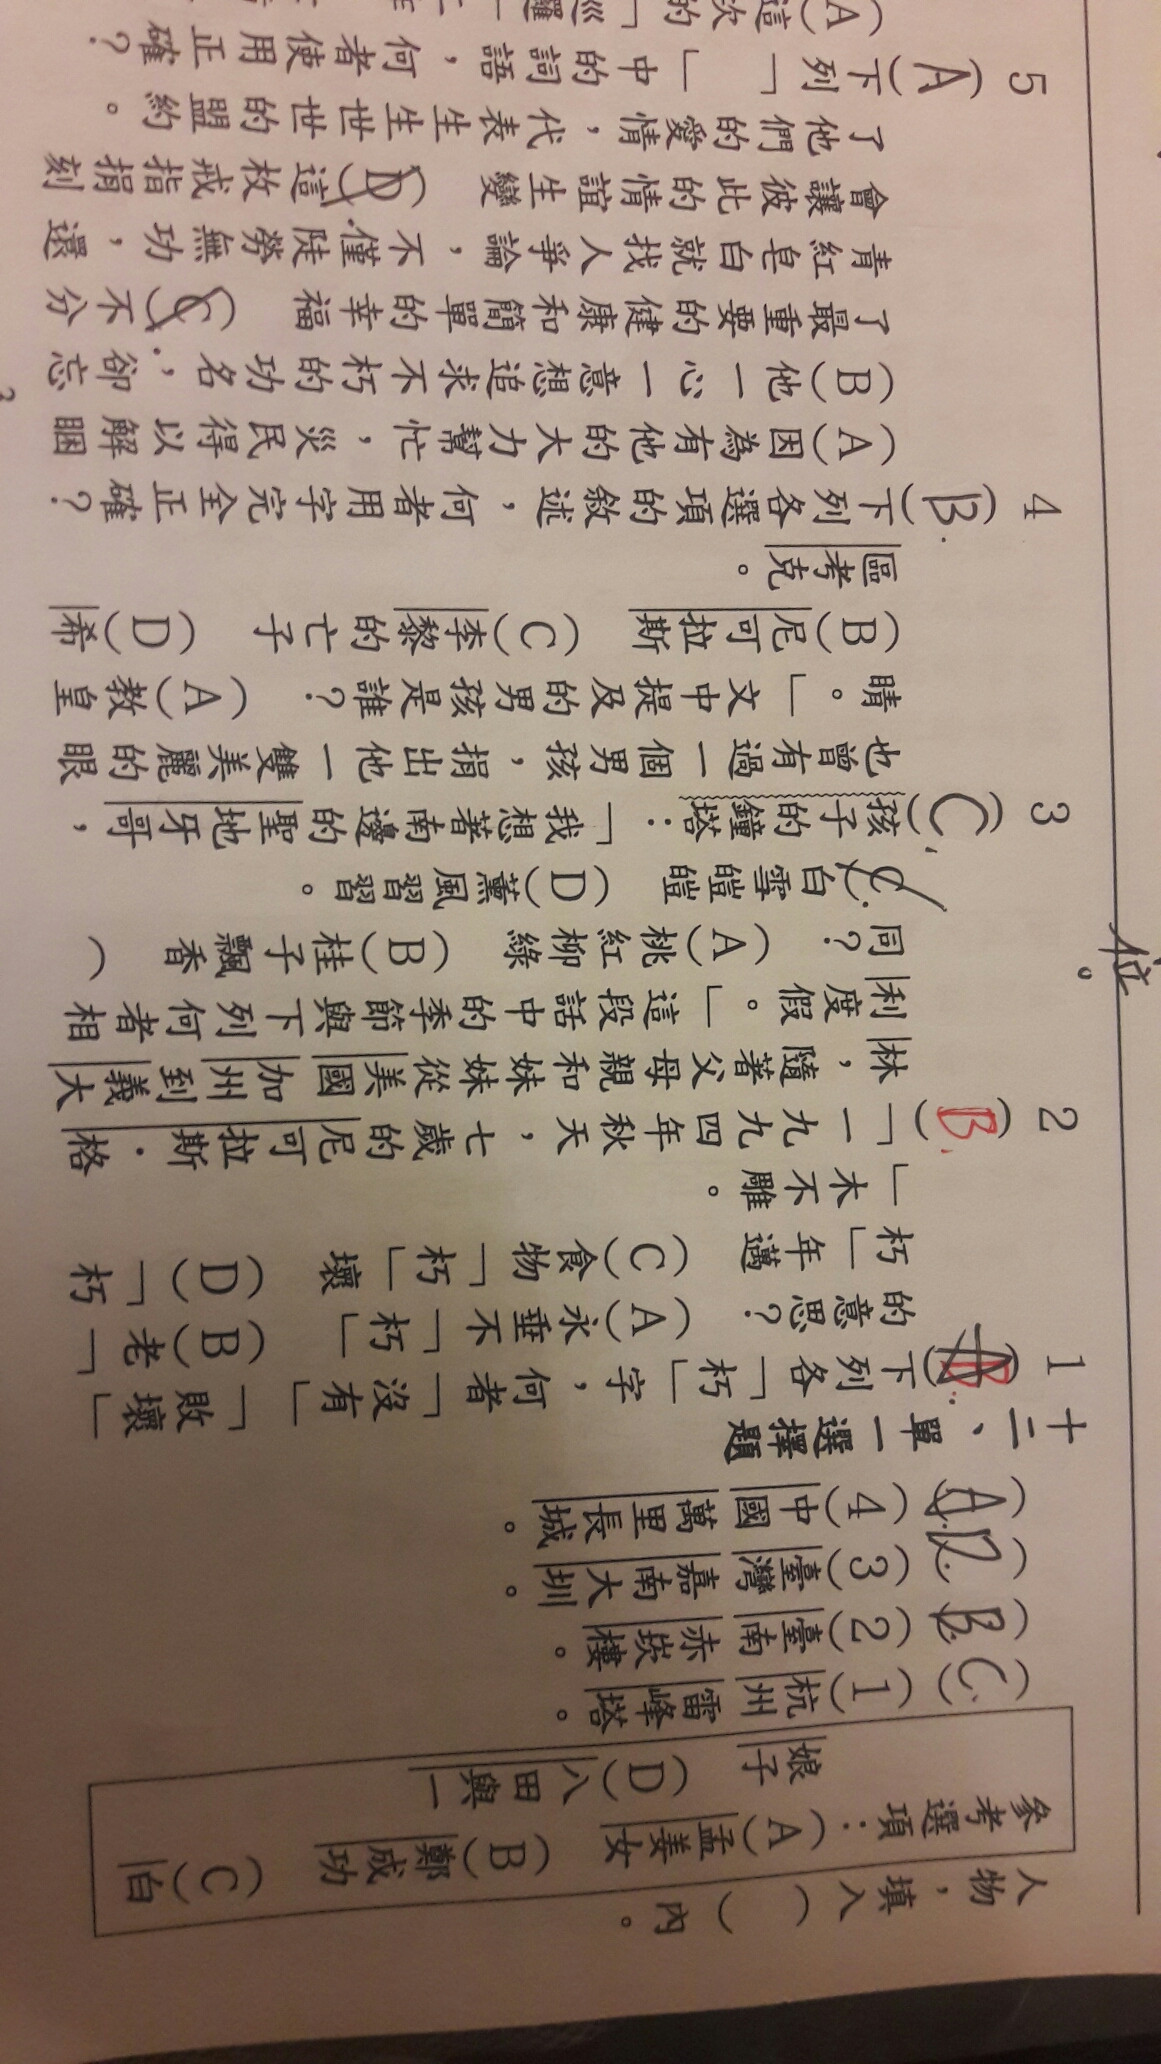 人物，填入（　）內。
參考選項：(A)孟姜女　(B)鄭成功　(C)白
娘子　(D)八田與一
(C)(1)杭州雷峰塔。
(B)(2)臺南赤崁樓。
(D)(3)臺灣嘉南大圳。
(A)(4)中國萬里長城。
十二、單一選擇題
1 (B)下列各「朽」字，何者「沒有」「敗壞」
的意思？　(A)永垂不「朽」　(B)老「
朽」年邁　(C)食物「朽」壞　(D)「朽
」木不雕。
2 (B)「一九九四年秋天，七歲的尼可拉斯．格
林，隨著父母親和妹妹從美國加州到義大
利度假。」這段話中的季節與下列何者相
同？　(A)桃紅柳綠　(B)桂子飄香　(
C)白雪皚皚　(D)薰風習習。
3 (C)孩子的鐘塔：「我想著南邊的聖地牙哥，
也曾有過一個男孩，捐出他一雙美麗的眼
睛。」文中提及的男孩是誰？　(A)教皇
(B)尼可拉斯　(C)李黎的亡子　(D)希
區考克。
4 (B)下列各選項的敘述，何者用字完全正確？
(A)因為有他的大力幫忙，災民得以解睏
(B)他一心一意想追求不朽的功名，卻忘
了最重要的健康和簡單的幸福　(C)不分
青紅皂白就找人爭論，不僅徒勞無功，還
會讓彼此的情誼生變　(D)這枚戒指捐刻
了他們的愛情，代表生生世世的盟約。
5 (A)下列「　」中的詞語，何者使用正確？
(A)這次的「巡邏
位。